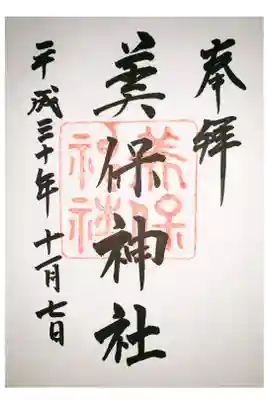 奉拝
美保神社
平成三十年 十一月七日
美保
神社